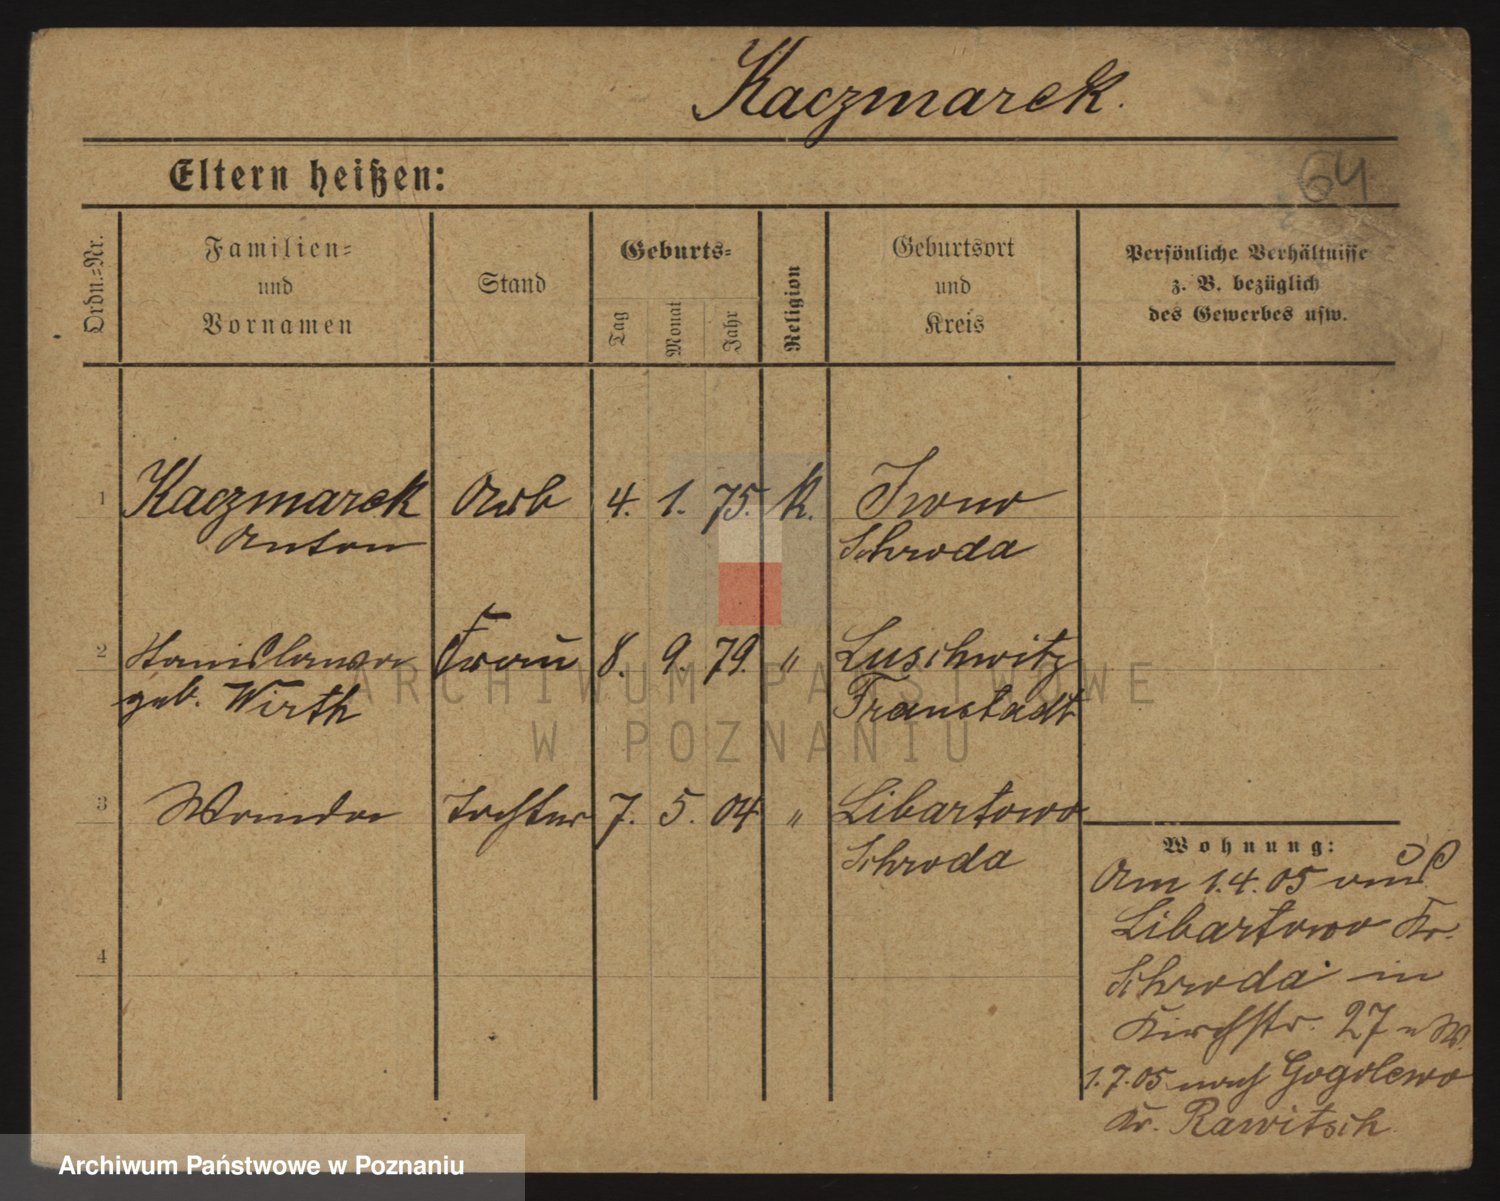 Kaczmarek.
64
Eltern heißen:
Ordn.=Nr.
Familien=
und
Vornamen
Stand
Geburts=
Tag
Monat
Jahr
Religion
Geburtsort
und
Kreis
Persönliche Verhältnisse
z. B. bezüglich
des Gewerbes usw.
1 Kaczmarek Arb 4. 1. 75. K. Iwno
Anton Schroda
2 Stanislawa Frau 8. 9. 79. " Luschwitz
geb. Wirth Fraustadt
3 Wanda Tochter 7. 5. 04 " Libartowo
Schroda
4
Wohnung:
Am 1.4.05 aus
Libartowo Kr.
Schroda in
Kirchstr. 27 W.
1.7.05 nach Gogolewo
Kr. Rawitsch
ARCHIWUM PAŃSTWOWE
W POZNANIU
Archiwum Państwowe w Poznaniu